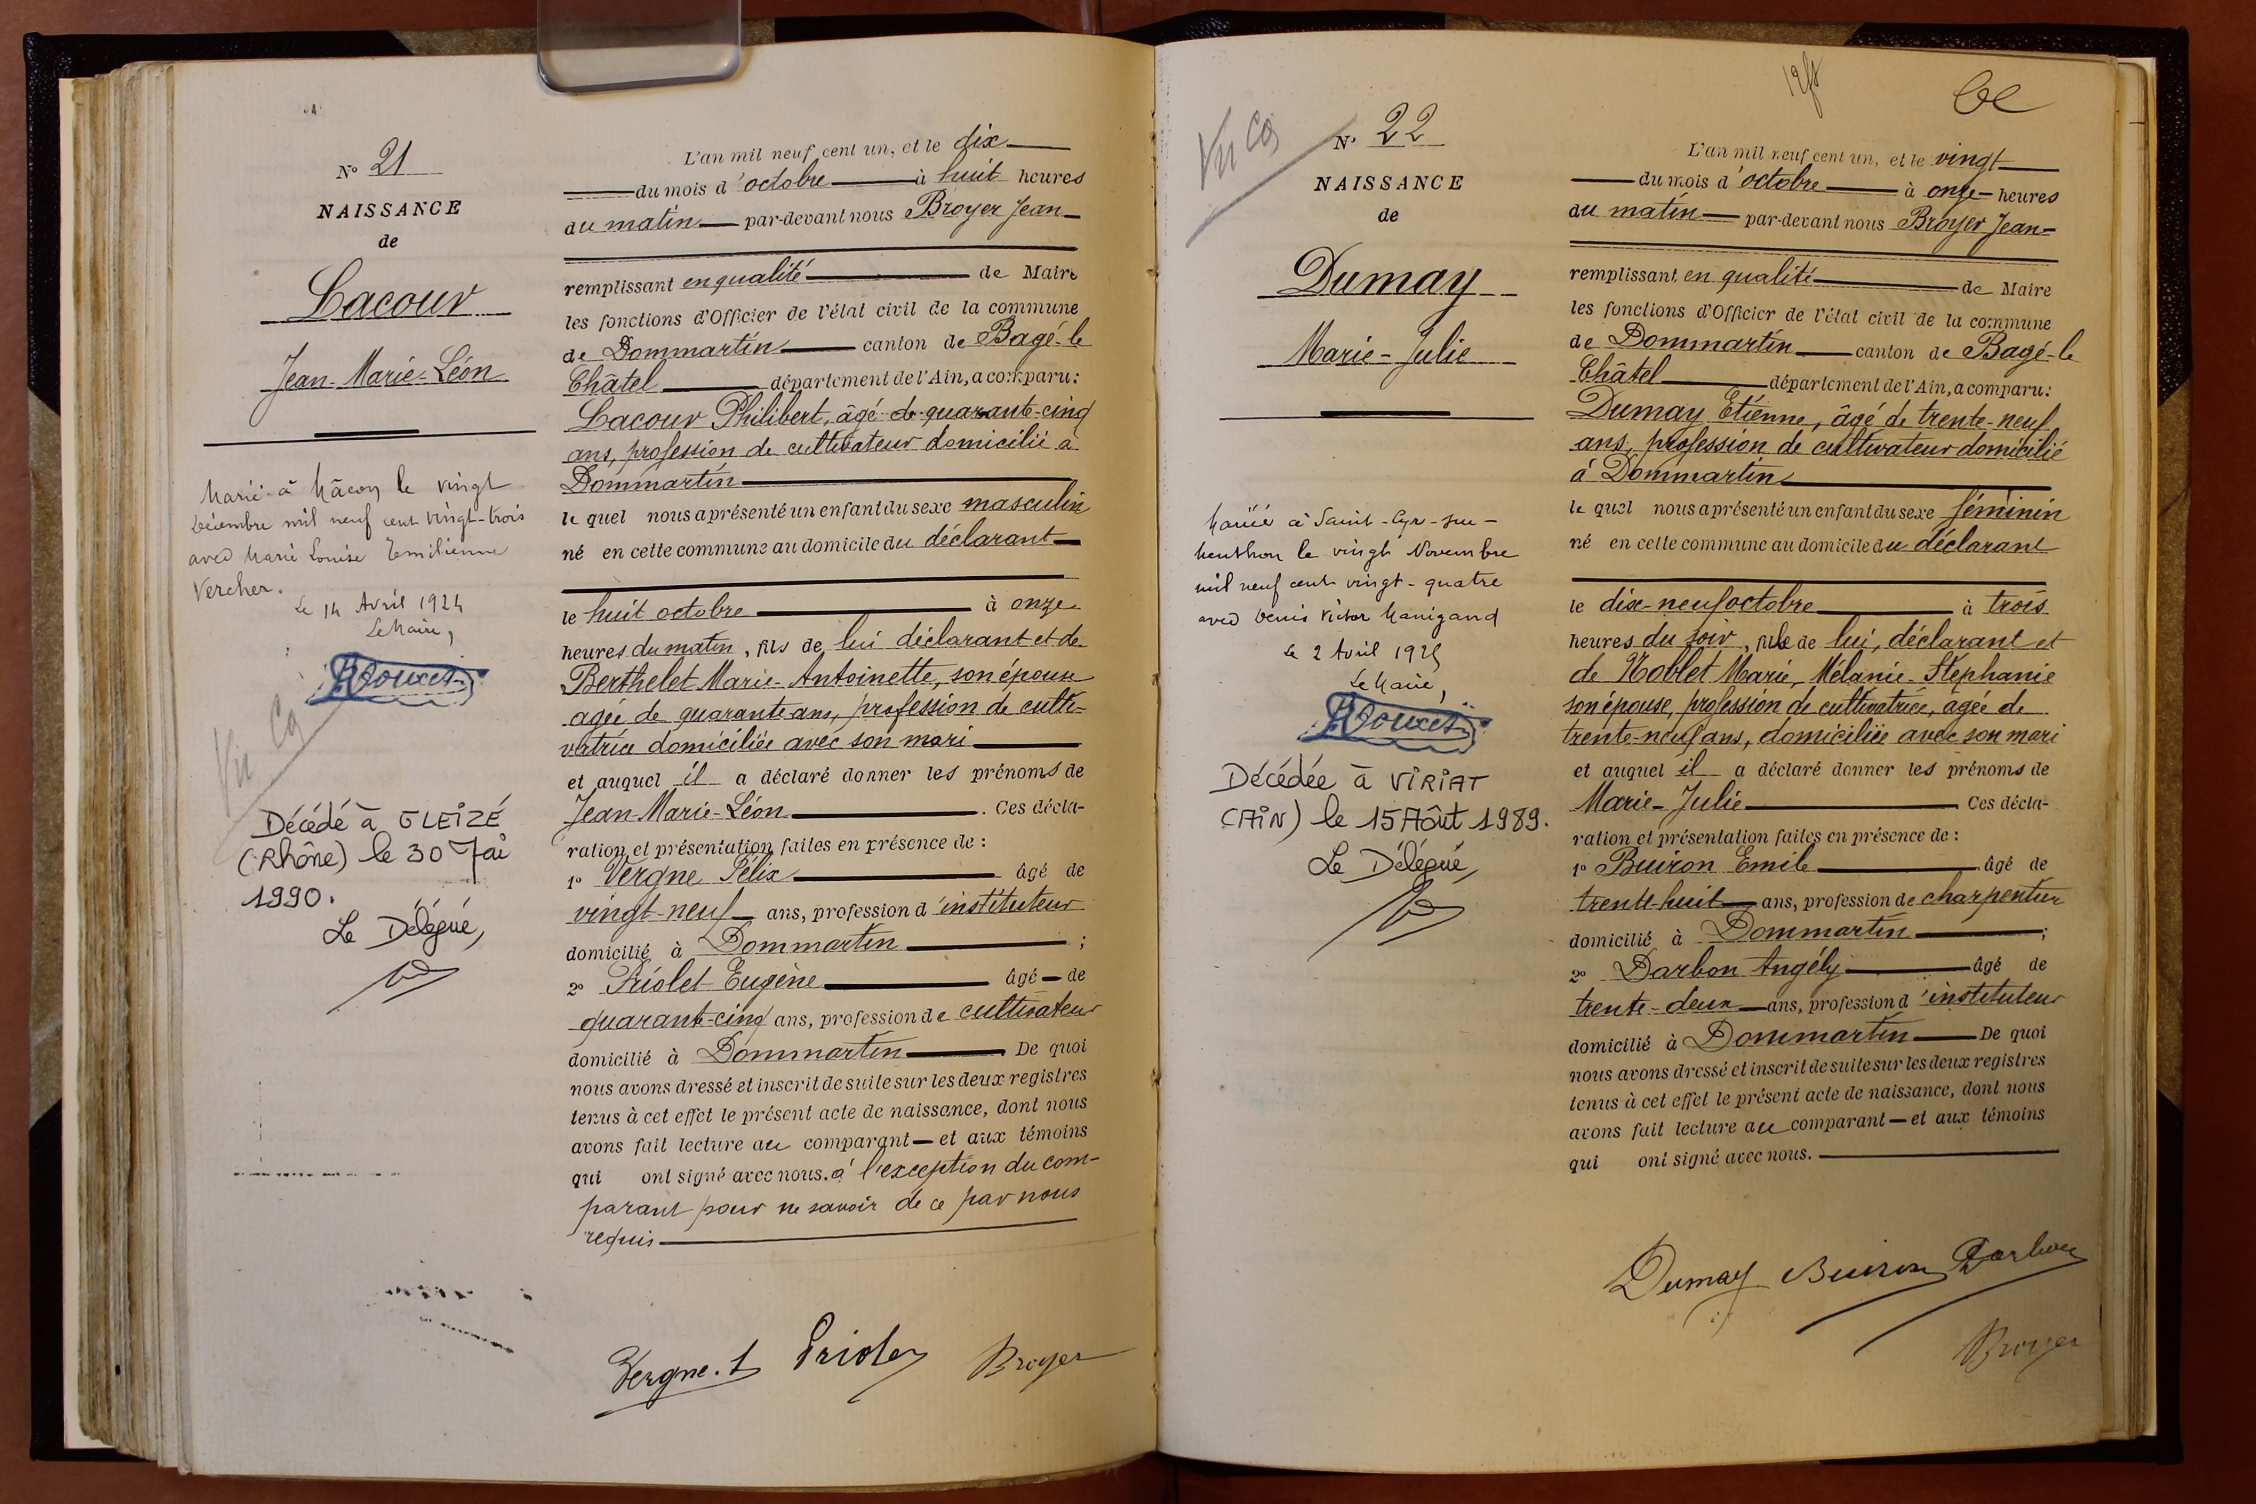 N° 21
NAISSANCE
de
Lacour
Jean-Marie-Léon
Marié à Mâcon le vingt
Décembre mil neuf cent vingt-trois
avec Marie Louise Emilienne
Vercher.
Le 14 Avril 1924
Le Maire,
Vu Cg
Décédé à GLEIZÉ
(Rhône) le 30 Mai
1990.
Le Délégué,
L'an mil neuf cent un, et le dix
du mois d'octobre à huit heures
du matin par-devant nous Broyer Jean
remplissant en qualité de Maire
les fonctions d'Officier de l'état civil de la commune
de Dommartin canton de Bagé-le
Châtel département de l'Ain, a comparu:
Lacour Philibert, âgé de quarante-cinq
ans, profession de cultivateur domicilié à
Dommartin
le quel nous a présenté un enfant du sexe masculin
né en cette commune au domicile du déclarant
le huit octobre à onze
heures du matin, fils de lui déclarant et de
Berthelet Marie-Antoinette, son épouse
agée de quarante ans, profession de culti-
vatrice domiciliée avec son mari
et auquel il a déclaré donner les prénoms de
Jean-Marie-Léon. Ces décla-
ration et présentation faites en présence de :
1° Vergne Félix âgé de
vingt-neuf ans, profession d'instituteur
domicilié à Dommartin ;
2° Priolet Eugène âgé de
quarante-cinq ans, profession de cultivateur
domicilié à Dommartin De quoi
nous avons dressé et inscrit de suite sur les deux registres
tenus à cet effet le présent acte de naissance, dont nous
avons fait lecture au comparant et aux témoins
qui ont signé avec nous. à l'exception du com-
parant pour ne savoir de ce par nous
requis
Vergne. f Priolet Broyer
Vu Cg
N° 22
NAISSANCE
de
Dumay
Marie-Julie
Mariée à Saint-Cyr-sur-
Menthon le vingt Novembre
mil neuf cent vingt-quatre
avec Denis Victor Manigand
Le 2 Avril 1925
Le Maire,
Décédée à VIRIAT
(AIN) le 15 Août 1989.
Le Délégué,
L'an mil neuf cent un, et le vingt
du mois d'octobre à onze heures
du matin par-devant nous Broyer Jean
remplissant en qualité de Maire
les fonctions d'Officier de l'état civil de la commune
de Dommartin canton de Bagé-le
Châtel département de l'Ain, a comparu:
Dumay Etienne, âgé de trente-neuf
ans, profession de cultivateur domicilié
à Dommartin
le quel nous a présenté un enfant du sexe féminin
né en cette commune au domicile du déclarant
le dix-neuf octobre à trois
heures du soir, fille de lui, déclarant et
de Noblet Marie, Mélanie-Stéphanie
son épouse, profession de cultivatrice, âgée de
trente-neuf ans, domiciliée avec son mari
et auquel il a déclaré donner les prénoms de
Marie-Julie Ces décla-
ration et présentation faites en présence de :
1° Buiron Emile âgé de
trente-huit ans, profession de charpentier
domicilié à Dommartin ;
2° Darbon Angély âgé de
trente-deux ans, profession d'instituteur
domicilié à Dommartin De quoi
nous avons dressé et inscrit de suite sur les deux registres
tenus à cet effet le présent acte de naissance, dont nous
avons fait lecture au comparant et aux témoins
qui ont signé avec nous.
Dumay Buiron Darbon
Broyer